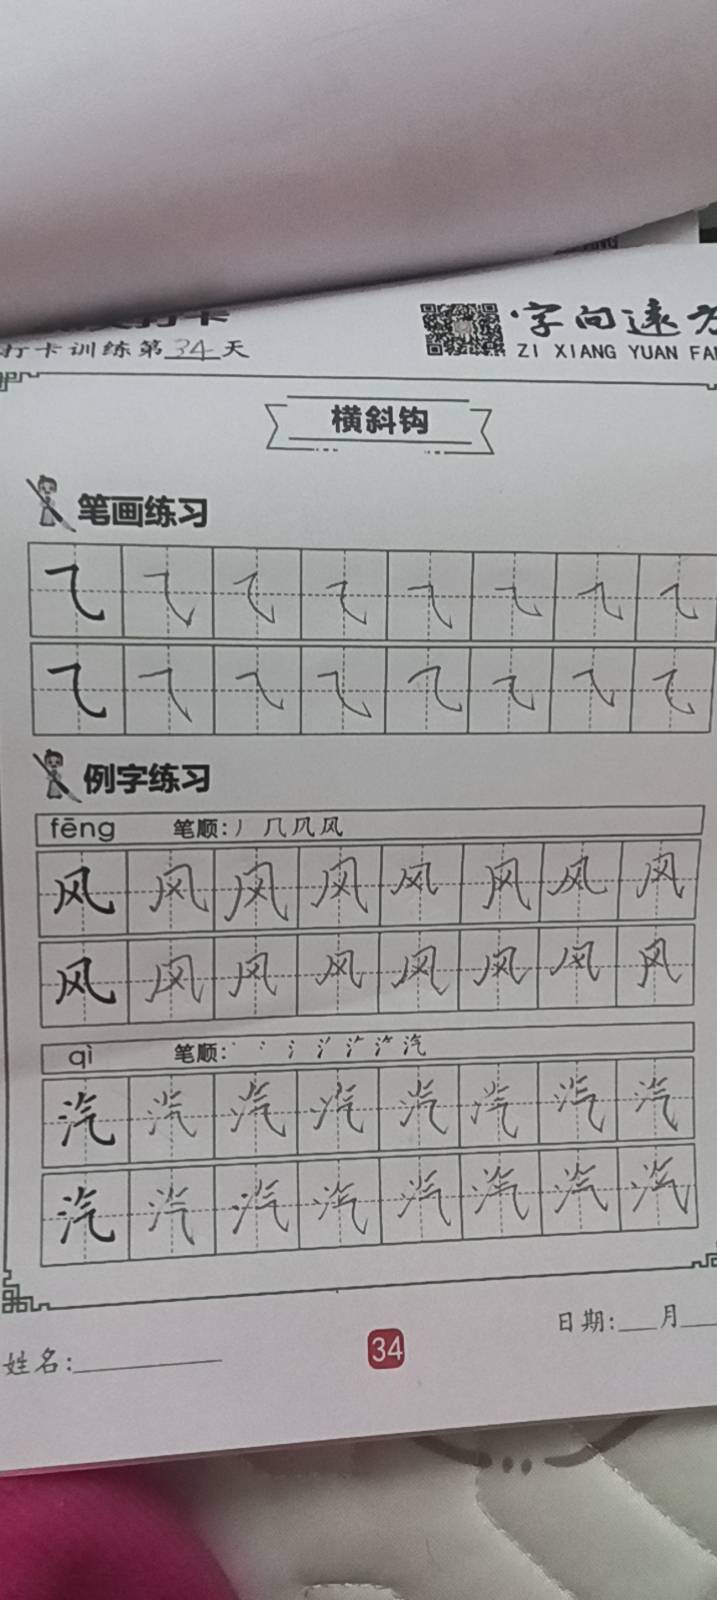 打卡训练第34天
字向远方
ZI XIANG YUAN FA
横斜钩
笔画练习
㇈ ㇈ ㇈ ㇈ ㇈ ㇈ ㇈ ㇈
㇈ ㇈ ㇈ ㇈ ㇈ ㇈ ㇈ ㇈
例字练习
fēng 笔顺:丿 几 凤 风
风 风 风 风 风 风 风 风
风 风 风 风 风 风 风 风
qì 笔顺:
汽 汽 汽 汽 汽 汽 汽 汽
汽 汽 汽 汽 汽 汽 汽 汽
日期:___月___
姓名:
34